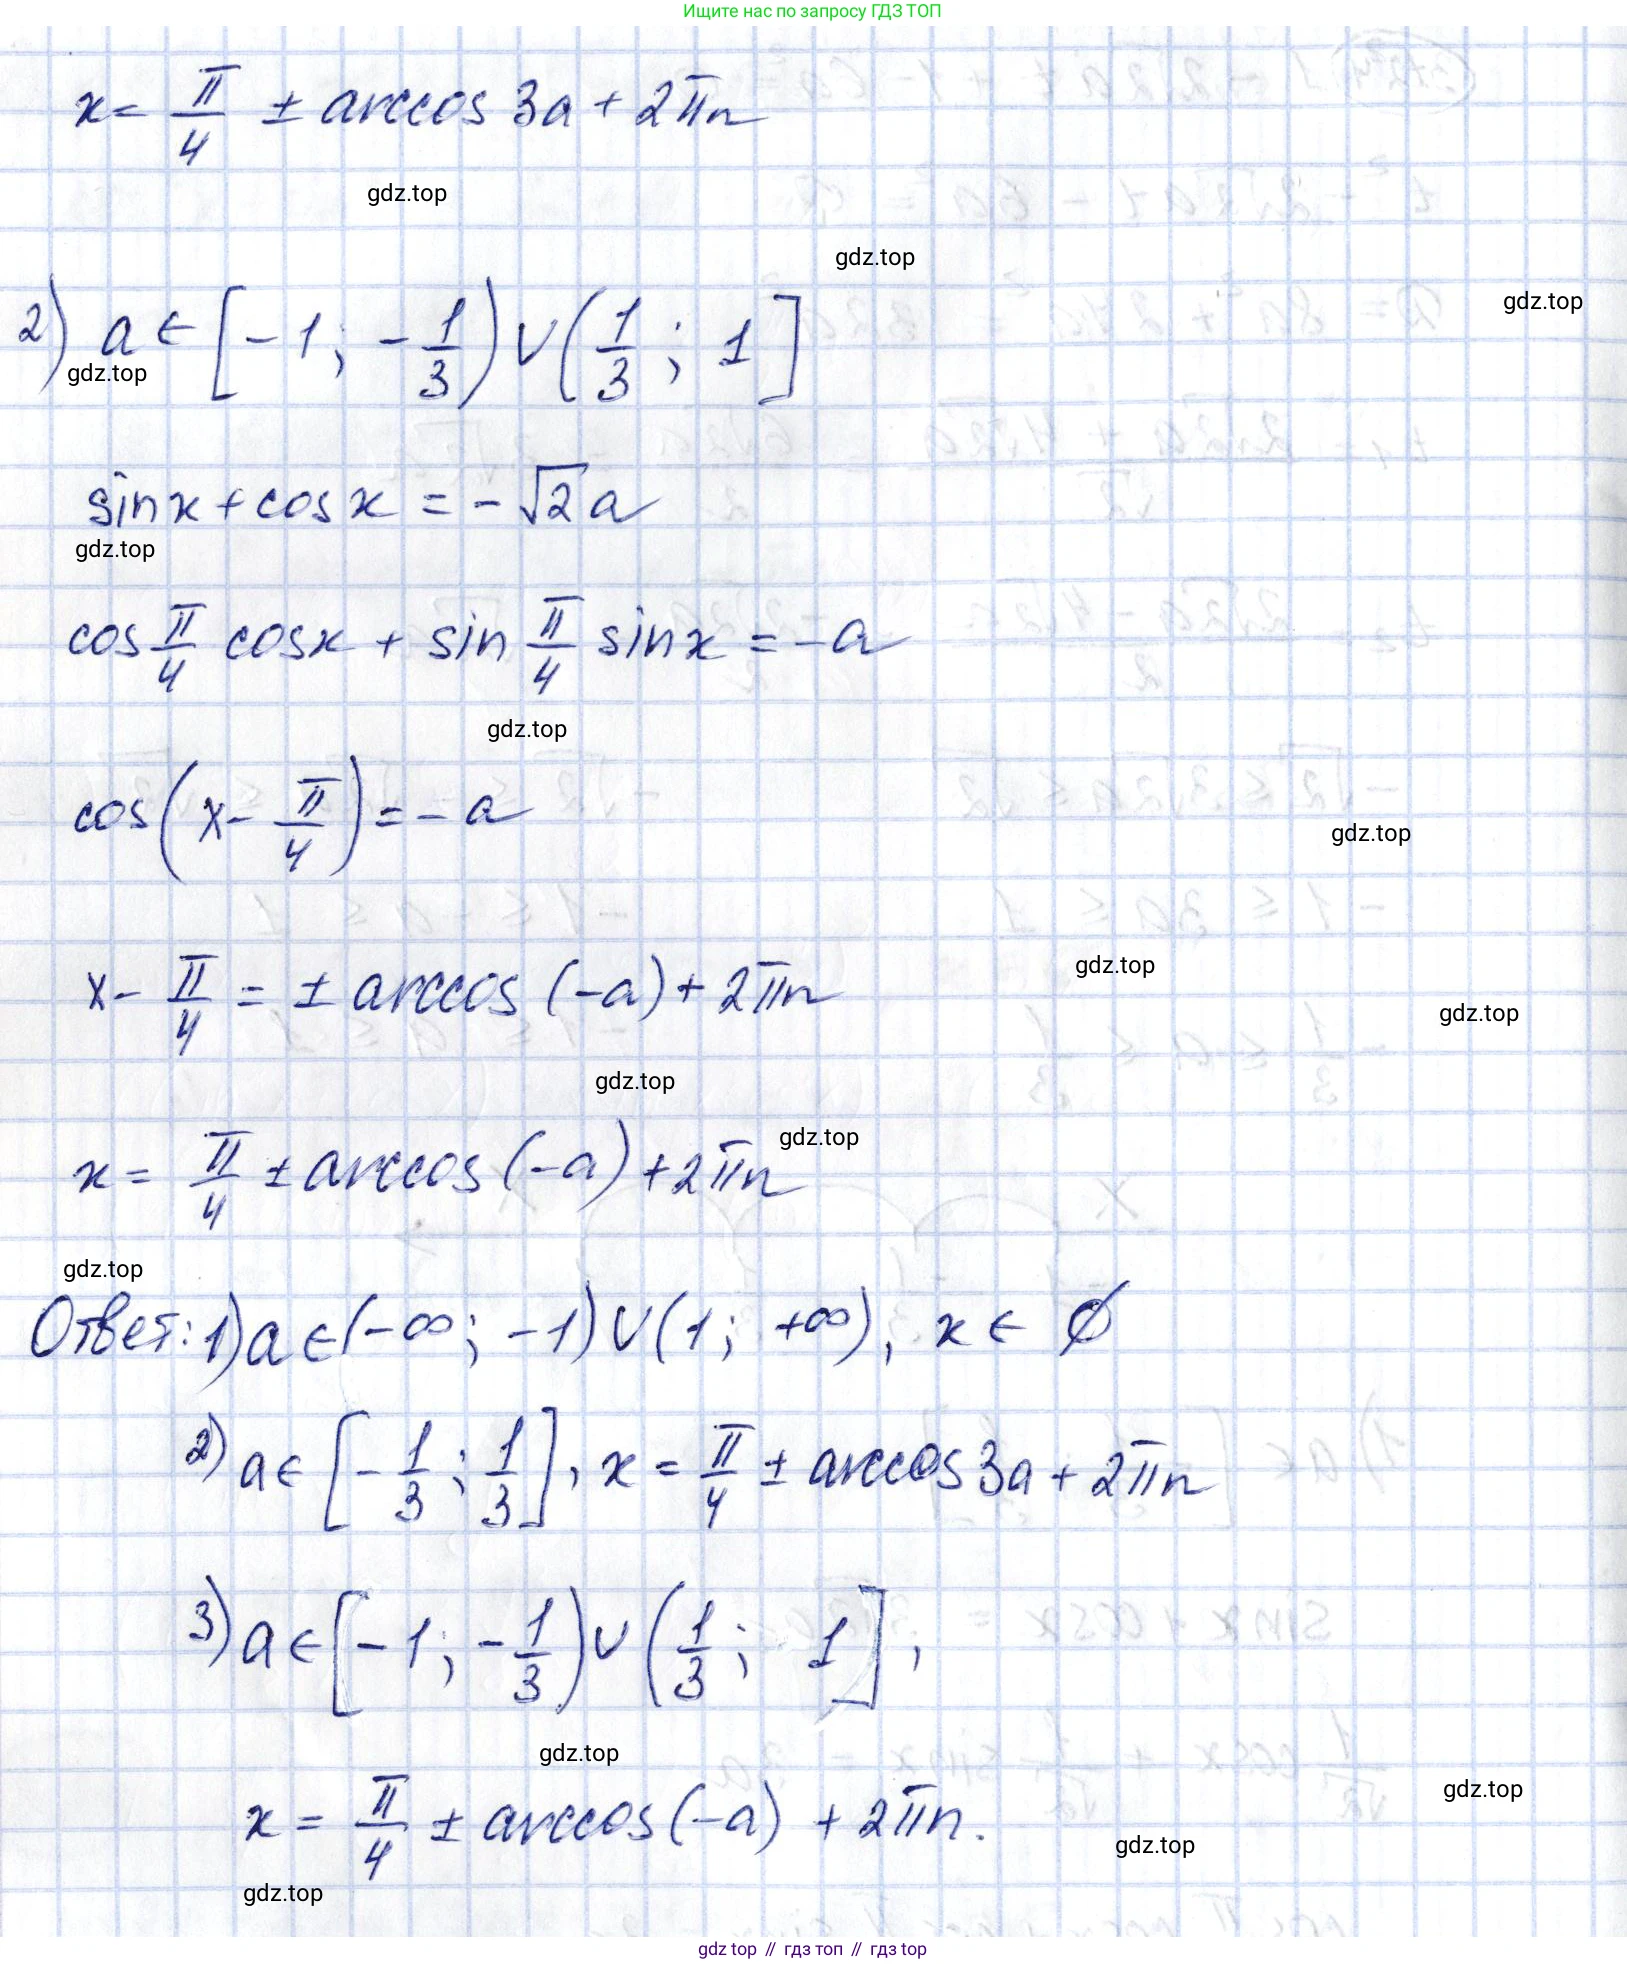 Ищите нас по запросу ГДЗ ТОП
x = π/4 ± arccos 3a + 2πn
gdz.top
gdz.top
gdz.top
2) a ∈ [-1; -1/3) ∪ (1/3; 1]
gdz.top
sinx + cosx = -√2a
gdz.top
cos π/4 cosx + sin π/4 sinx = -a
gdz.top
cos(x - π/4) = -a
gdz.top
x - π/4 = ± arccos (-a) + 2πn
gdz.top
gdz.top
gdz.top
x = π/4 ± arccos (-a) + 2πn
gdz.top
gdz.top
Ответ: 1) a ∈ (-∞; -1) ∪ (1; +∞), x ∈ ∅
2) a ∈ [-1/3; 1/3], x = π/4 ± arccos 3a + 2πn
3) a ∈ [-1; -1/3) ∪ (1/3; 1],
gdz.top
x = π/4 ± arccos (-a) + 2πn.
gdz.top
gdz.top
gdz.top
gdz top // гдз топ // гдз top